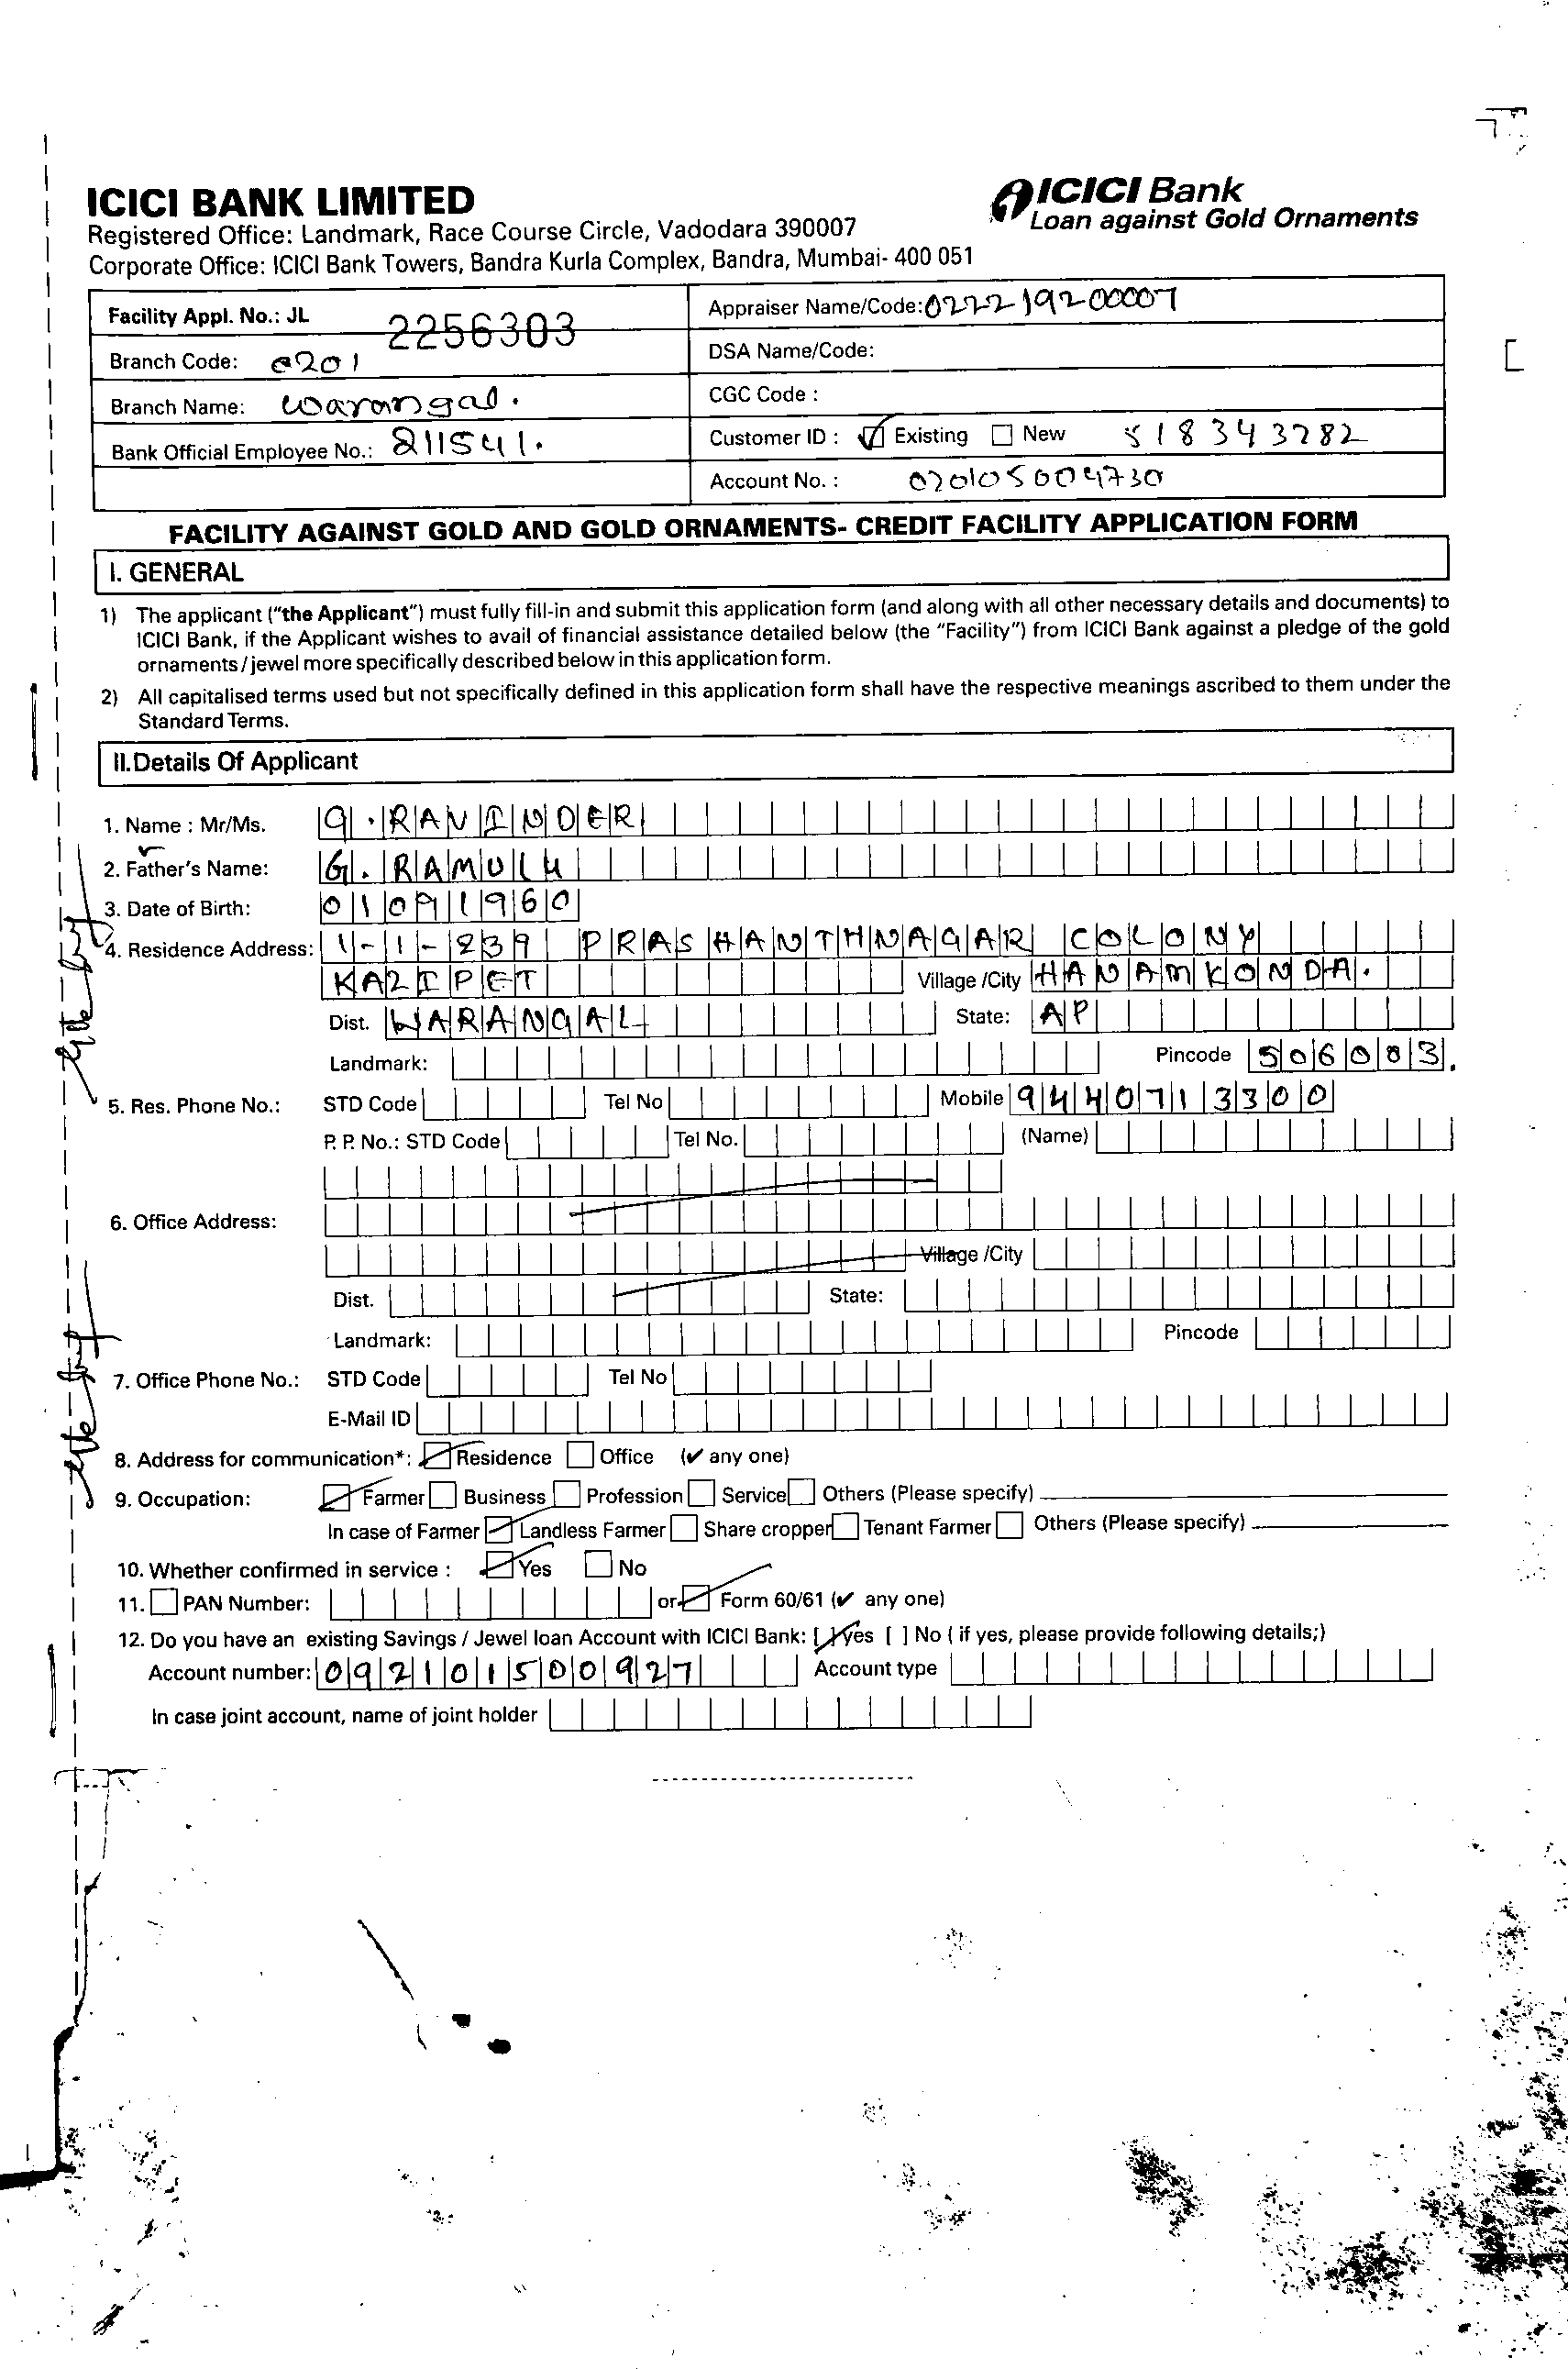 ICICI BANK LIMITED
Registered Office: Landmark, Race Course Circle, Vadodara 390007
Corporate Office: ICICI Bank Towers, Bandra Kurla Complex, Bandra, Mumbai- 400 051
ICICI Bank
Loan against Gold Ornaments
Facility Appl. No.: JL 2256303
Branch Code: 0201
Branch Name: Warangal.
Bank Official Employee No.: 211541.
Appraiser Name/Code: 022219200007
DSA Name/Code:
CGC Code :
Customer ID : Existing New 518343782
Account No. : 020105004730
FACILITY AGAINST GOLD AND GOLD ORNAMENTS- CREDIT FACILITY APPLICATION FORM
I. GENERAL
1) The applicant ("the Applicant") must fully fill-in and submit this application form (and along with all other necessary details and documents) to
ICICI Bank, if the Applicant wishes to avail of financial assistance detailed below (the "Facility") from ICICI Bank against a pledge of the gold
ornaments/jewel more specifically described below in this application form.
2) All capitalised terms used but not specifically defined in this application form shall have the respective meanings ascribed to them under the
Standard Terms.
II.Details Of Applicant
1. Name : Mr/Ms. G. RAVINDER
2. Father's Name: G. RAMULU
3. Date of Birth: 01091960
4. Residence Address: 1-1-239 PRASHANTHNAGAR COLONY
KAZIPET Village /City HANAMKONDA.
Dist. WARANGAL State: AP
Landmark: Pincode 506003.
5. Res. Phone No.: STD Code Tel No Mobile 9440713300
P. P. No.: STD Code Tel No. (Name)
6. Office Address:
Village /City
Dist. State:
Landmark: Pincode
7. Office Phone No.: STD Code Tel No
E-Mail ID
8. Address for communication*: Residence Office (✔ any one)
9. Occupation: Farmer Business Profession Service Others (Please specify)
In case of Farmer Landless Farmer Share cropper Tenant Farmer Others (Please specify)
10. Whether confirmed in service : Yes No
11. PAN Number: or Form 60/61 (✔ any one)
12. Do you have an existing Savings / Jewel loan Account with ICICI Bank: [ ] Yes [ ] No ( if yes, please provide following details;)
Account number: 092101500927 Account type
In case joint account, name of joint holder